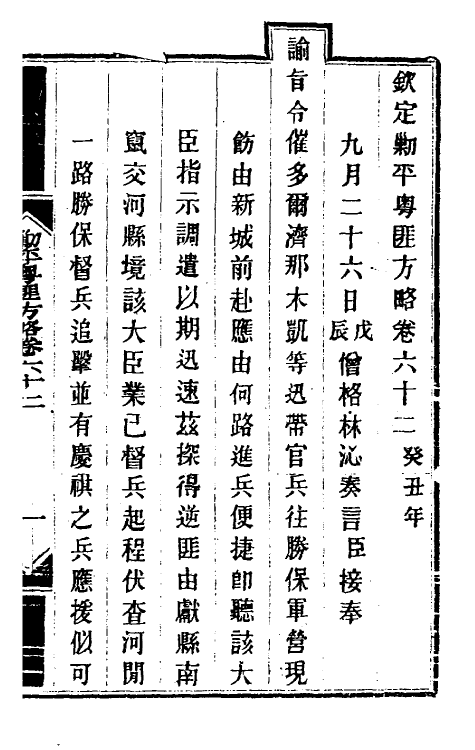 欽定勦平粵匪方略卷六十二 癸丑年
九月二十六日戊辰僧格林沁奏言臣接奉
諭旨令催多爾濟那木凱等迅帶官兵往勝保軍營現
飭由新城前赴應由何路進兵便捷卽聽該大
臣指示調遣以期迅速茲探得逆匪由獻縣南
竄交河縣境該大臣業已督兵起程伏查河閒
一路勝保督兵追擊並有慶祺之兵應援似可
勦平粵匪方略卷六十二
一